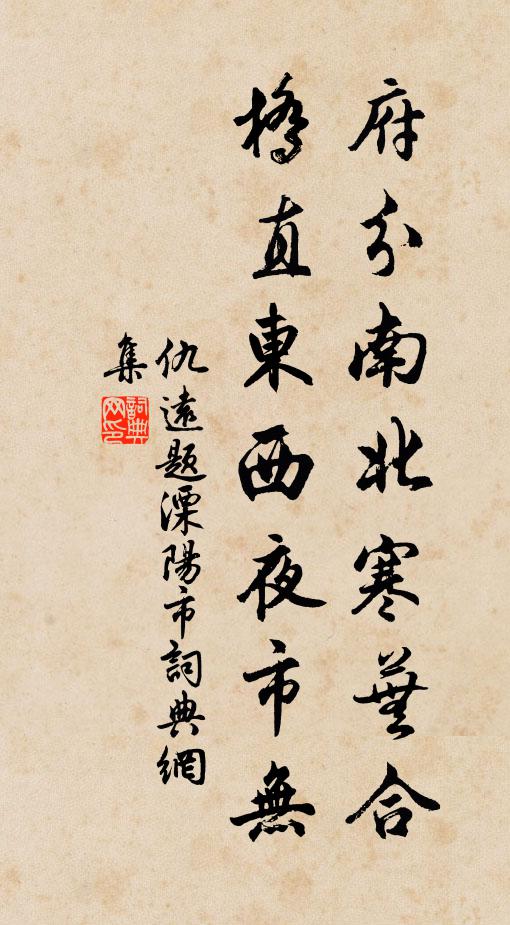 府分南北寒蕪合
橋直東西夜市無
仇遠題溧陽市詞典網
集
詞典網印